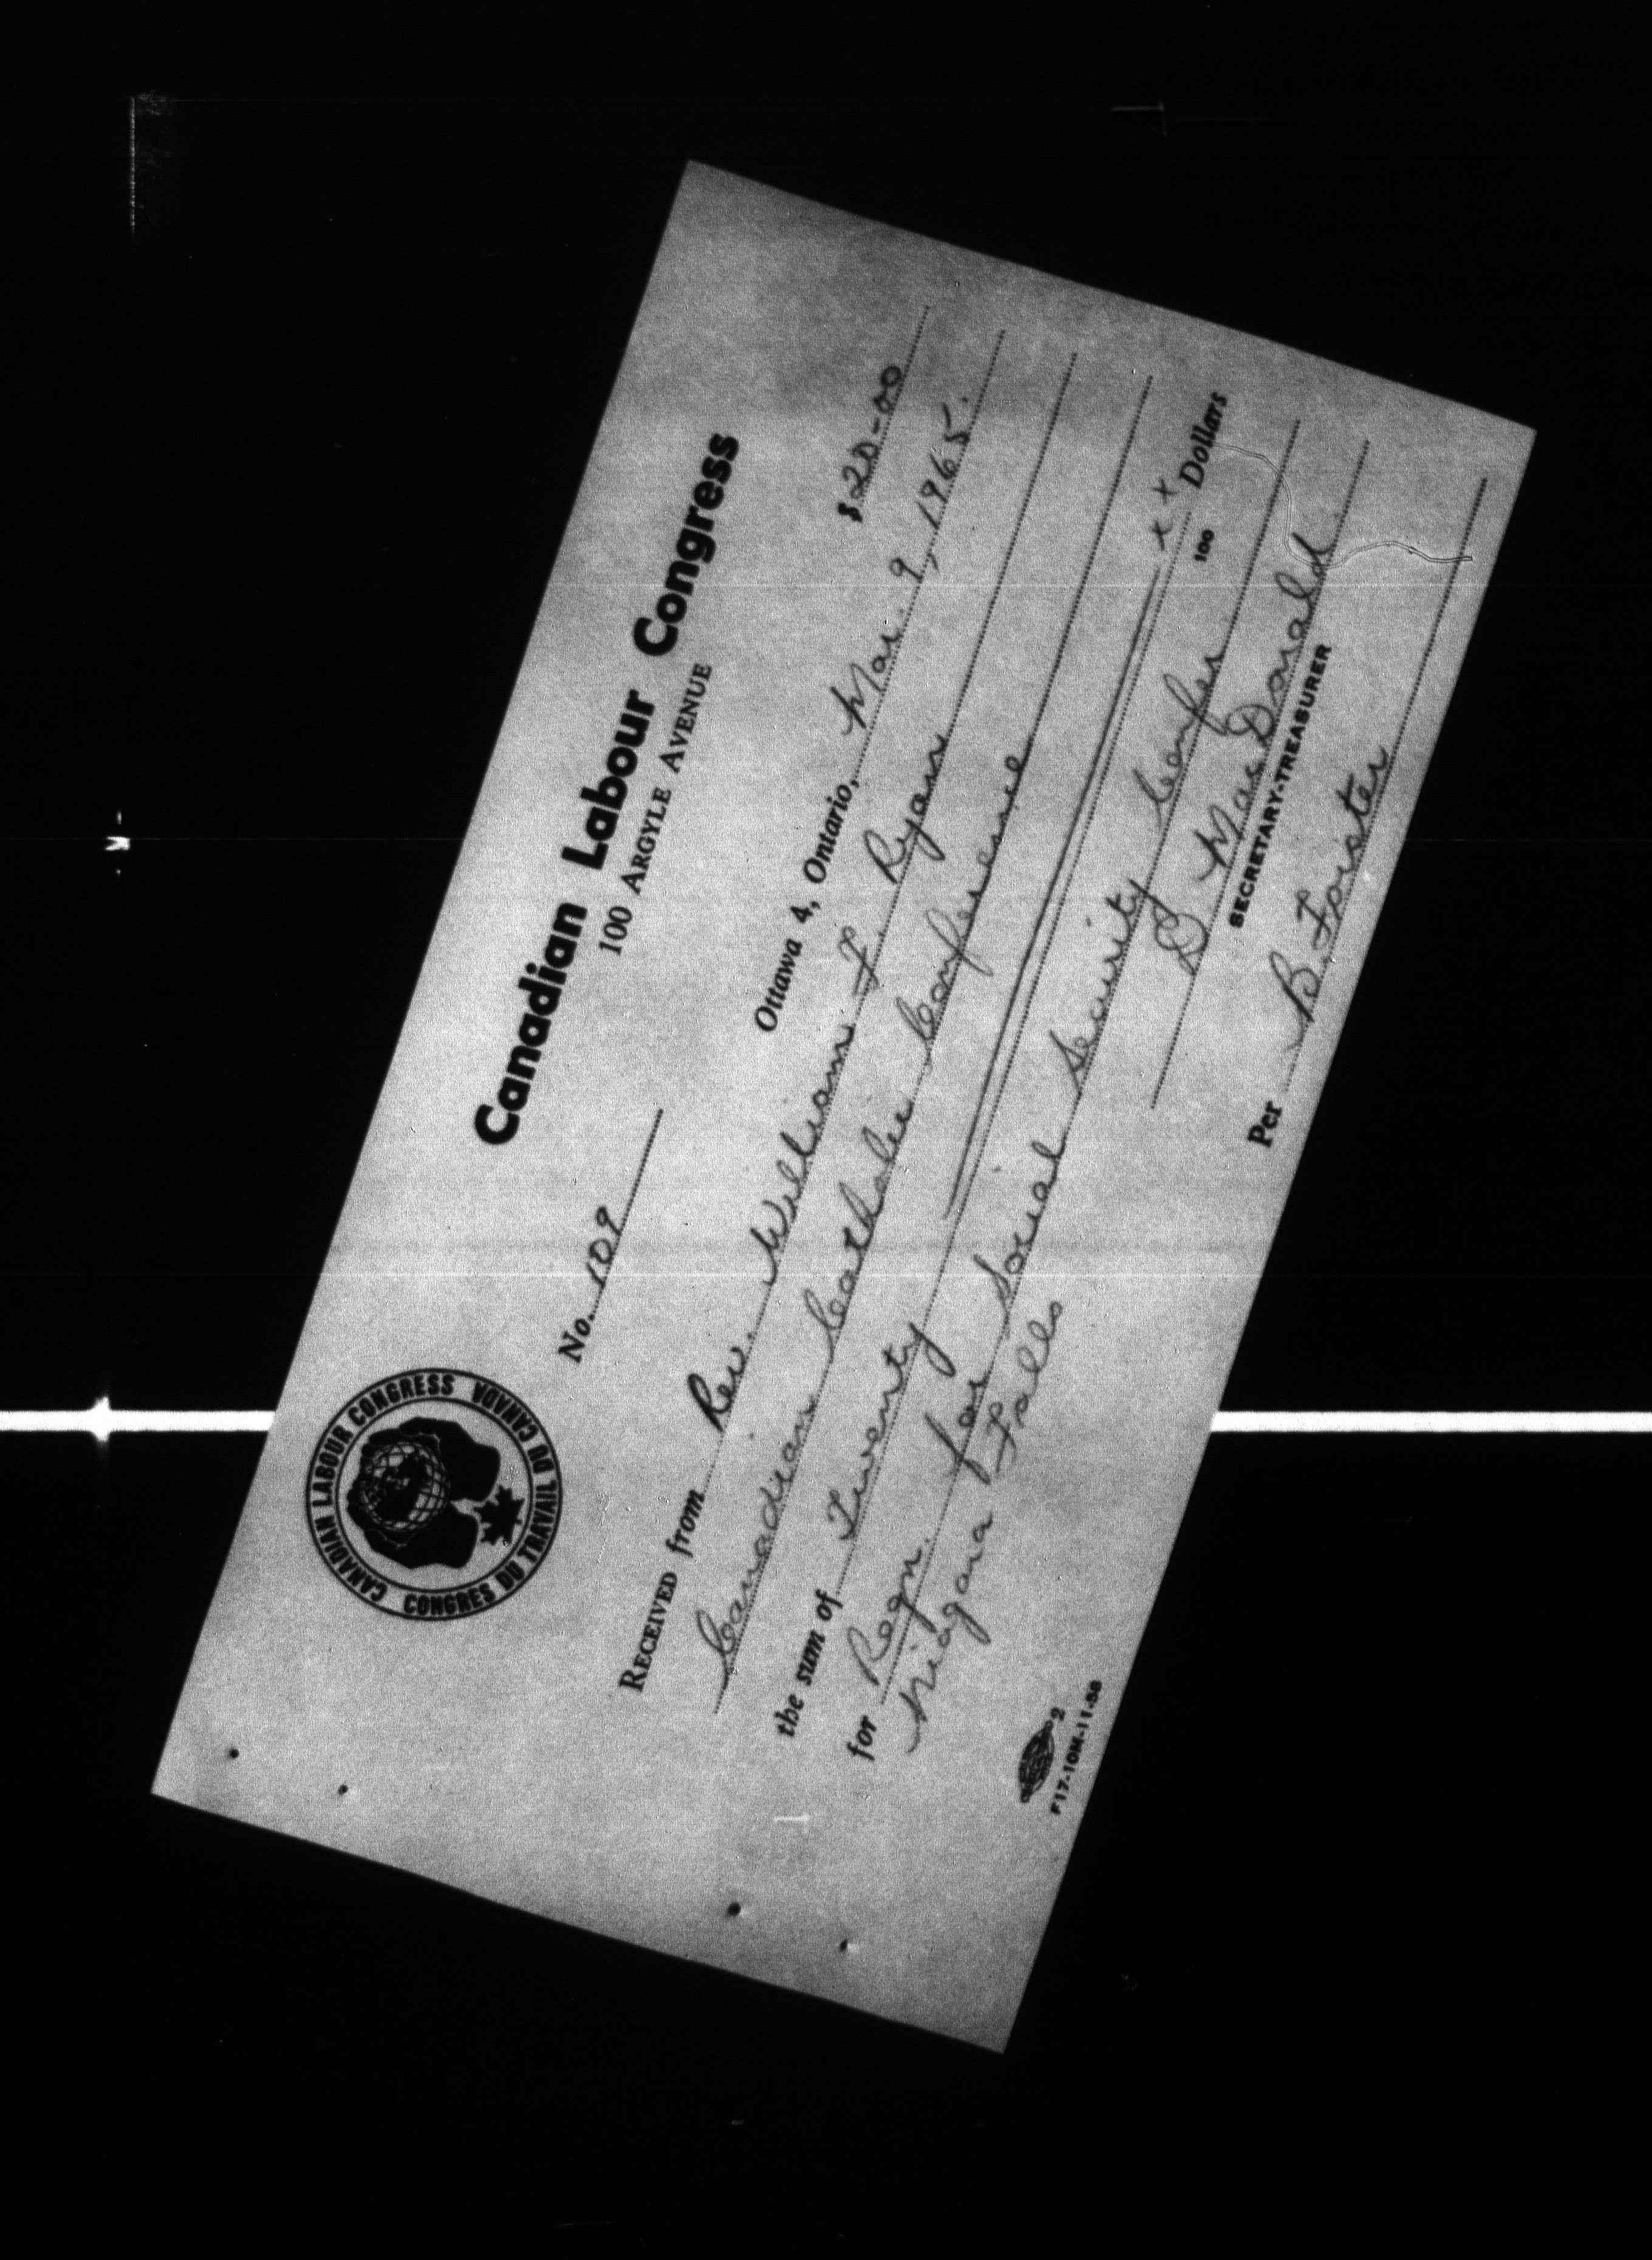 Canadian Labour Congress
100 ARGYLE AVENUE
CANADIAN LABOUR CONGRESS
CONGRES DU TRAVAIL DU CANADA
No. 109
$20-00
Ottawa 4, Ontario, Mar. 9, 1965.
RECEIVED from Rev. William F. Ryan
Canadian Catholic Conference
the sum of Twenty xx/100 Dollars
for Regn. for Social Security Confer
Niagara Falls
D MacDonald
SECRETARY-TREASURER
Per B. Forster
2
F17-10M-11-58